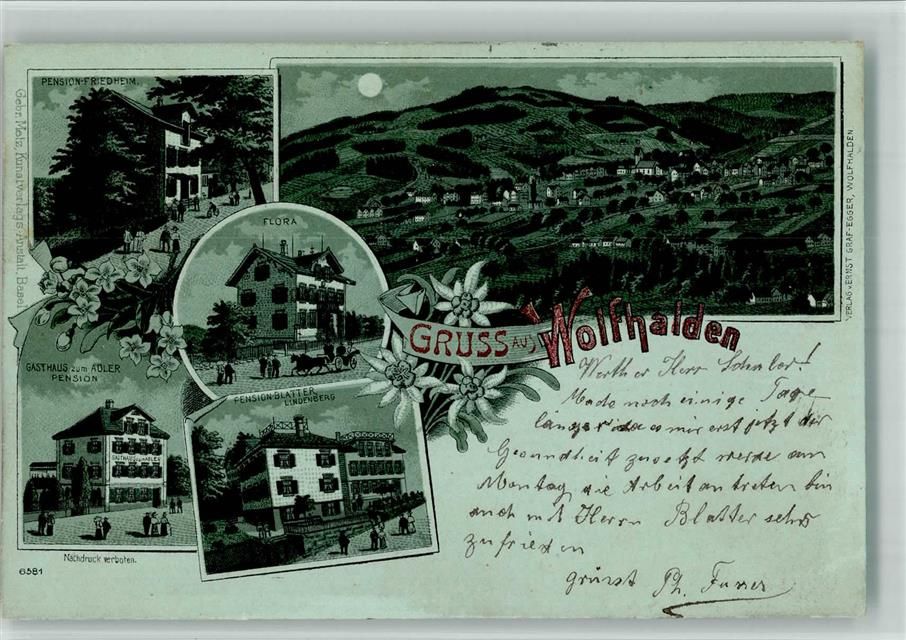 PENSION-FRIEDHEIM.
Gebr. Metz, Kunstverlags-Anstalt, Basel
FLORA
VERLAG v. ERNST GRAF-EGGER, WOLFHALDEN
GRUSS AUS
Wolfhalden
GASTHAUS zum ADLER
PENSION
GASTHAUS zum ADLER
PENSION-BLATTER
LINDENBERG
Werther Herr
Mache noch einige Tage
länger da es mir erst jetzt der
Gesundheit zusetzt werde am
Montag die Arbeit antreten bin
auch mit Herrn Blatter sehr
zufrieden
grüsst Ph. Furrer
Nachdruck verboten.
6581